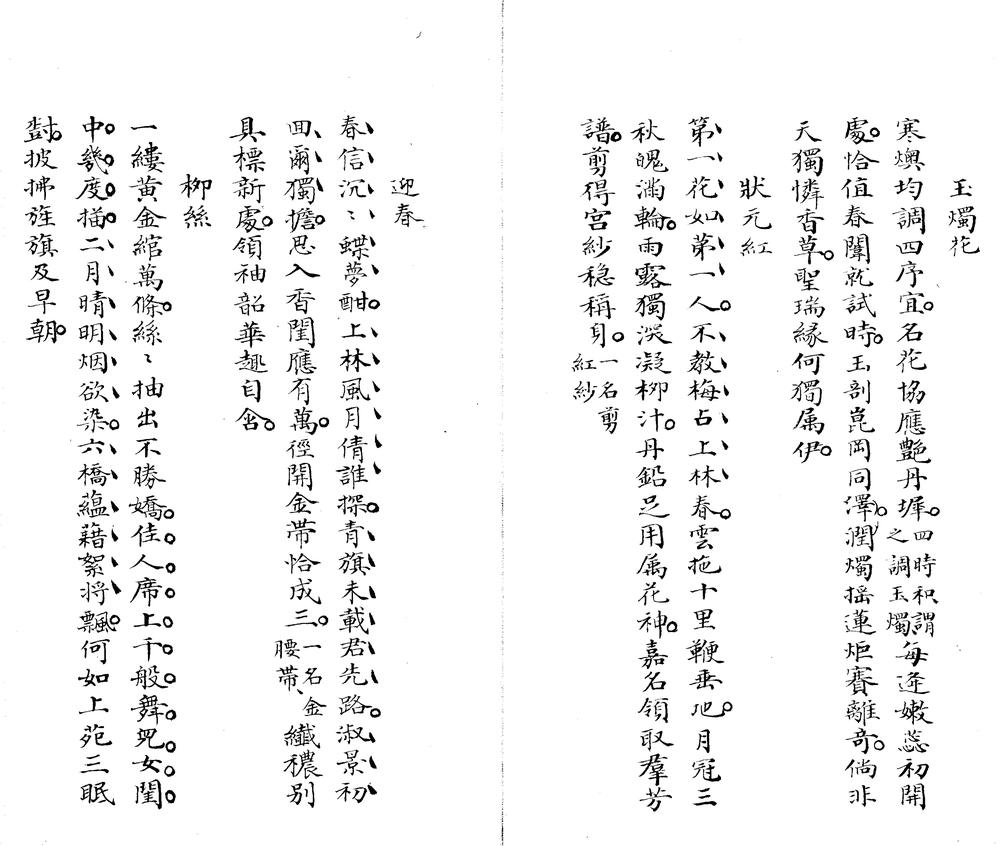 玉燭花
寒燠均調四序宜。名花協應艷丹墀。四時和謂之調玉燭每逢嫩蕊初開
處。恰值春闈就試時。玉剖崑岡同澤潤。燭搖蓮炬賽離奇。倘非
天獨憐香草。聖瑞緣何獨属伊。
狀元紅
第一花如第一人。不教梅占上林春。雲拖十里鞭垂地。月冠三
秋魄滿輪。雨露獨深凝柳汁。丹鉛足用属花神。嘉名領取羣芳
譜。剪得宮紗稳稱身。一名剪紅紗
迎春
春信沉〻蝶夢酣。上林風月倩誰探。青旗未載君先路。淑景初
回爾獨擔。思入香閨應有萬。徑開金帶恰成三。一名金腰帶、纖穠別
具標新處。領袖韶華趣自含。
柳絲
一縷黃金綰萬條。絲〻抽出不勝嬌。佳人席上千般舞。兒女閨
中。幾度描。二月晴明烟欲染。六橋藴藉絮將飄。何如上苑三眠
對。披拂旌旗及早朝。